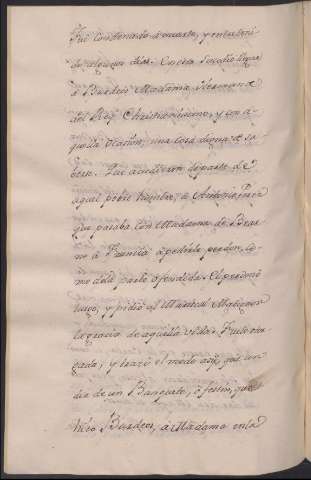 Fue condenado à muerte, y entreteni-
do algunos dias. En esta sazón llegó
à Burdeos Madama Hermana
del Rey Christianisimo, y con a-
quella ocasion, una cosa digna de sa-
berse. Fue acudieron de parte de
aquel pobre hombre, à Antonio Perez
que pasaba con Madama de Bear-
ne à Francia à pedirle perdon, co-
mo dela parte ofendida. El perdonó
luego, y pidió al Mariscal Matignon
la gracia de aquella vida. Fuele otor-
gada, y trazó el modo así, que un
dia de un Banquete, ò festin, que se
hizo Burdeos, à Madama en la